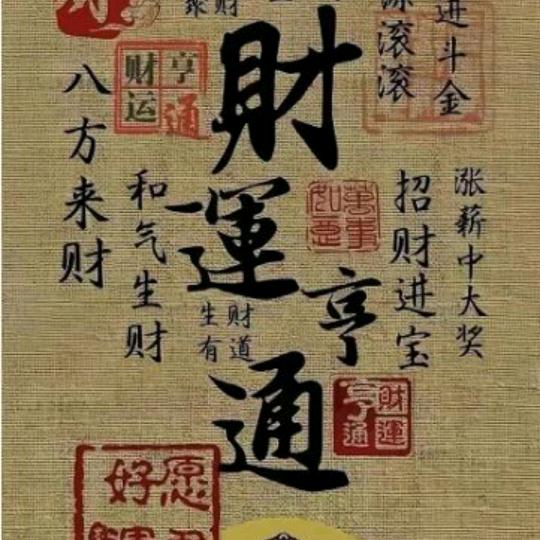 聚财
滚滚
进斗金
財運亨通
财运亨通
八方来财
和气生财
萬事如意
招财进宝
涨薪中大奖
生财有道
財運亨通
好愿